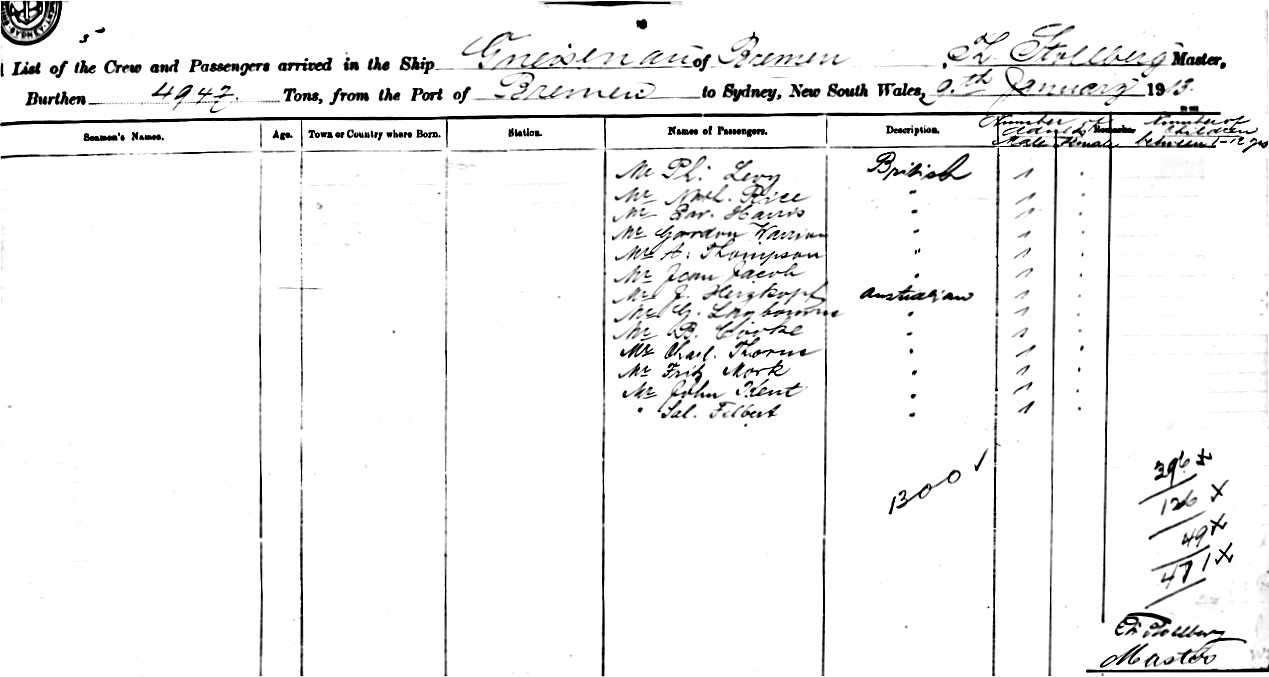 SYDNEY
5
List of the Crew and Passengers arrived in the Ship Gneisenau of Bremen Stollberg Master,
Burthen 4942 Tons, from the Port of Bremen to Sydney, New South Wales, 9th January 1913.
Seamen's Names. Age. Town or Country where Born. Station. Names of Passengers. Description. Number of Adults Male Female Remarks Number of Children between 1-12 yrs
Mr Ph. Levy British 1 .
Mr Rice " 1 .
Mr Harris " 1 .
Mr Gordon " 1 .
Mr A. Thompson " 1 .
Mr Jean Jacob " 1 .
Mr J. Herzkopf Australian 1 .
Mr G. " 1 .
Mr B. " 1 .
Mr Charl. Thorns " 1 .
Mr Fritz Mork " 1 .
Mr John Kent " 1 .
" Sal. Filbert " 1 .
1300 ✓
396 x
126 x
49 x
471 x
Stollberg
Master